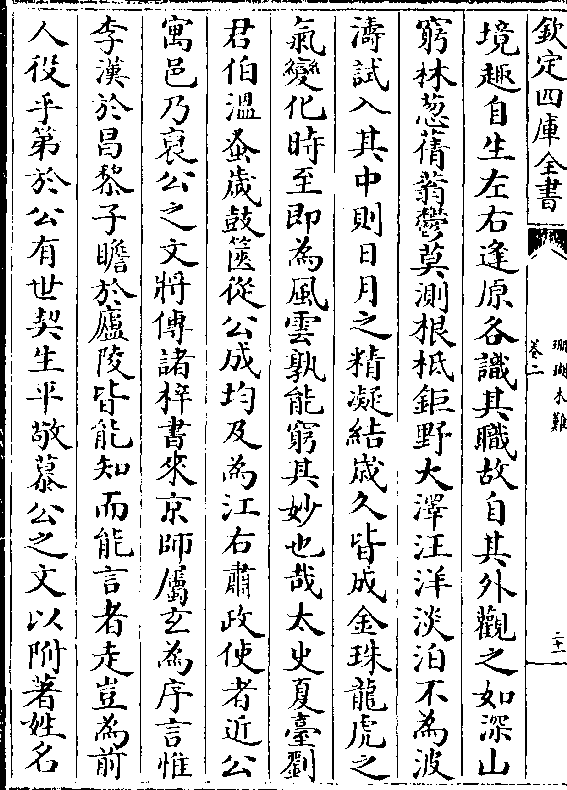 欽定四庫全書
珊瑚木難
卷二
二十一
境趣自生左右逢原各識其職故自其外觀之如深山
窮林葱蒨蓊鬱莫測根柢鉅野大澤汪洋淡泊不為波
濤試入其中則日月之精凝結歲久皆成金珠龍虎之
氣變化時至即為風雲孰能窮其妙也哉太史夏臺劉
君伯溫蚤歲鼓篋從公成均及為江右肅政使者近公
寓邑乃裒公之文將傳諸梓書來京師屬玄為序言惟
李漢於昌黎子瞻於廬陵皆能知而能言者走豈為前
人役乎第於公有世契生平敬慕公之文以附著姓名